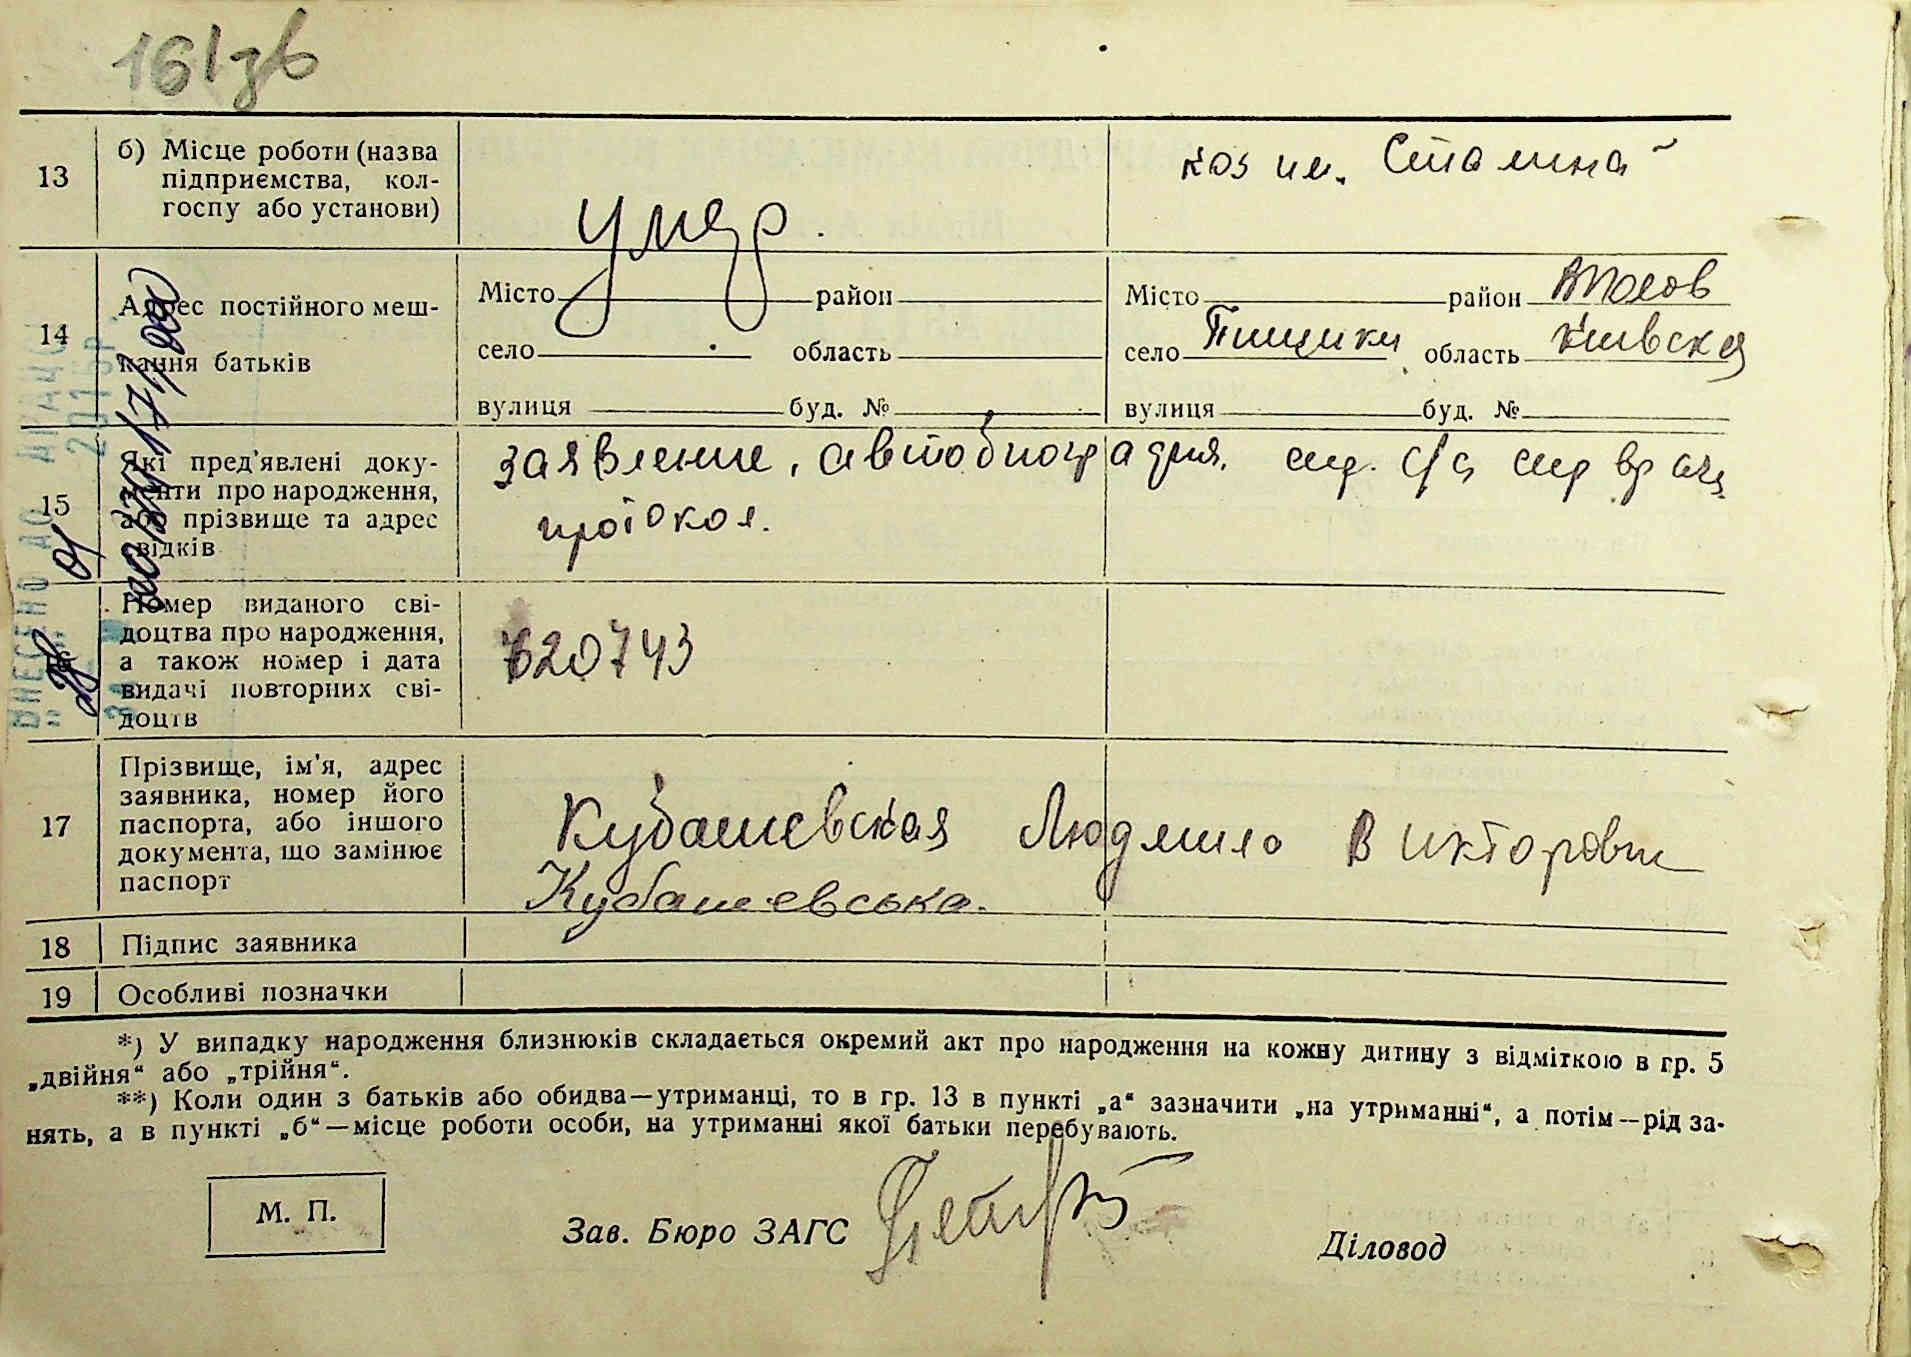 161зв
13
б) Місце роботи (назва
підприємства, кол-
госпу або установи)
умер.
коз им. Сталина
14
Адрес постійного меш-
кання батьків
Місто район
село область
вулиця буд. №
Місто район
село Пищики область Киевская
вулиця буд. №
15
Які пред'явлені доку-
менти про народження,
або прізвище та адрес
свідків
заявление, автобиография, спр. с/с спр врача
протокол.
Номер виданого сві-
доцтва про народження,
а також номер і дата
видачі повторних сві-
доцтв
620743
17
Прізвище, ім'я, адрес
заявника, номер його
паспорта, або іншого
документа, що замінює
паспорт
Кубашевская Людмила Викторовн
Кубашевська.
18
Підпис заявника
19
Особливі позначки
*) У випадку народження близнюків складається окремий акт про народження на кожну дитину з відміткою в гр. 5
„двійня“ або „трійня“.
**) Коли один з батьків або обидва—утриманці, то в гр. 13 в пункті „а“ зазначити „на утриманні“, а потім—рід за-
нять, а в пункті „б“—місце роботи особи, на утриманні якої батьки перебувають.
М. П.
Зав. Бюро ЗАГС
Діловод
ВНЕСЕНО ДО